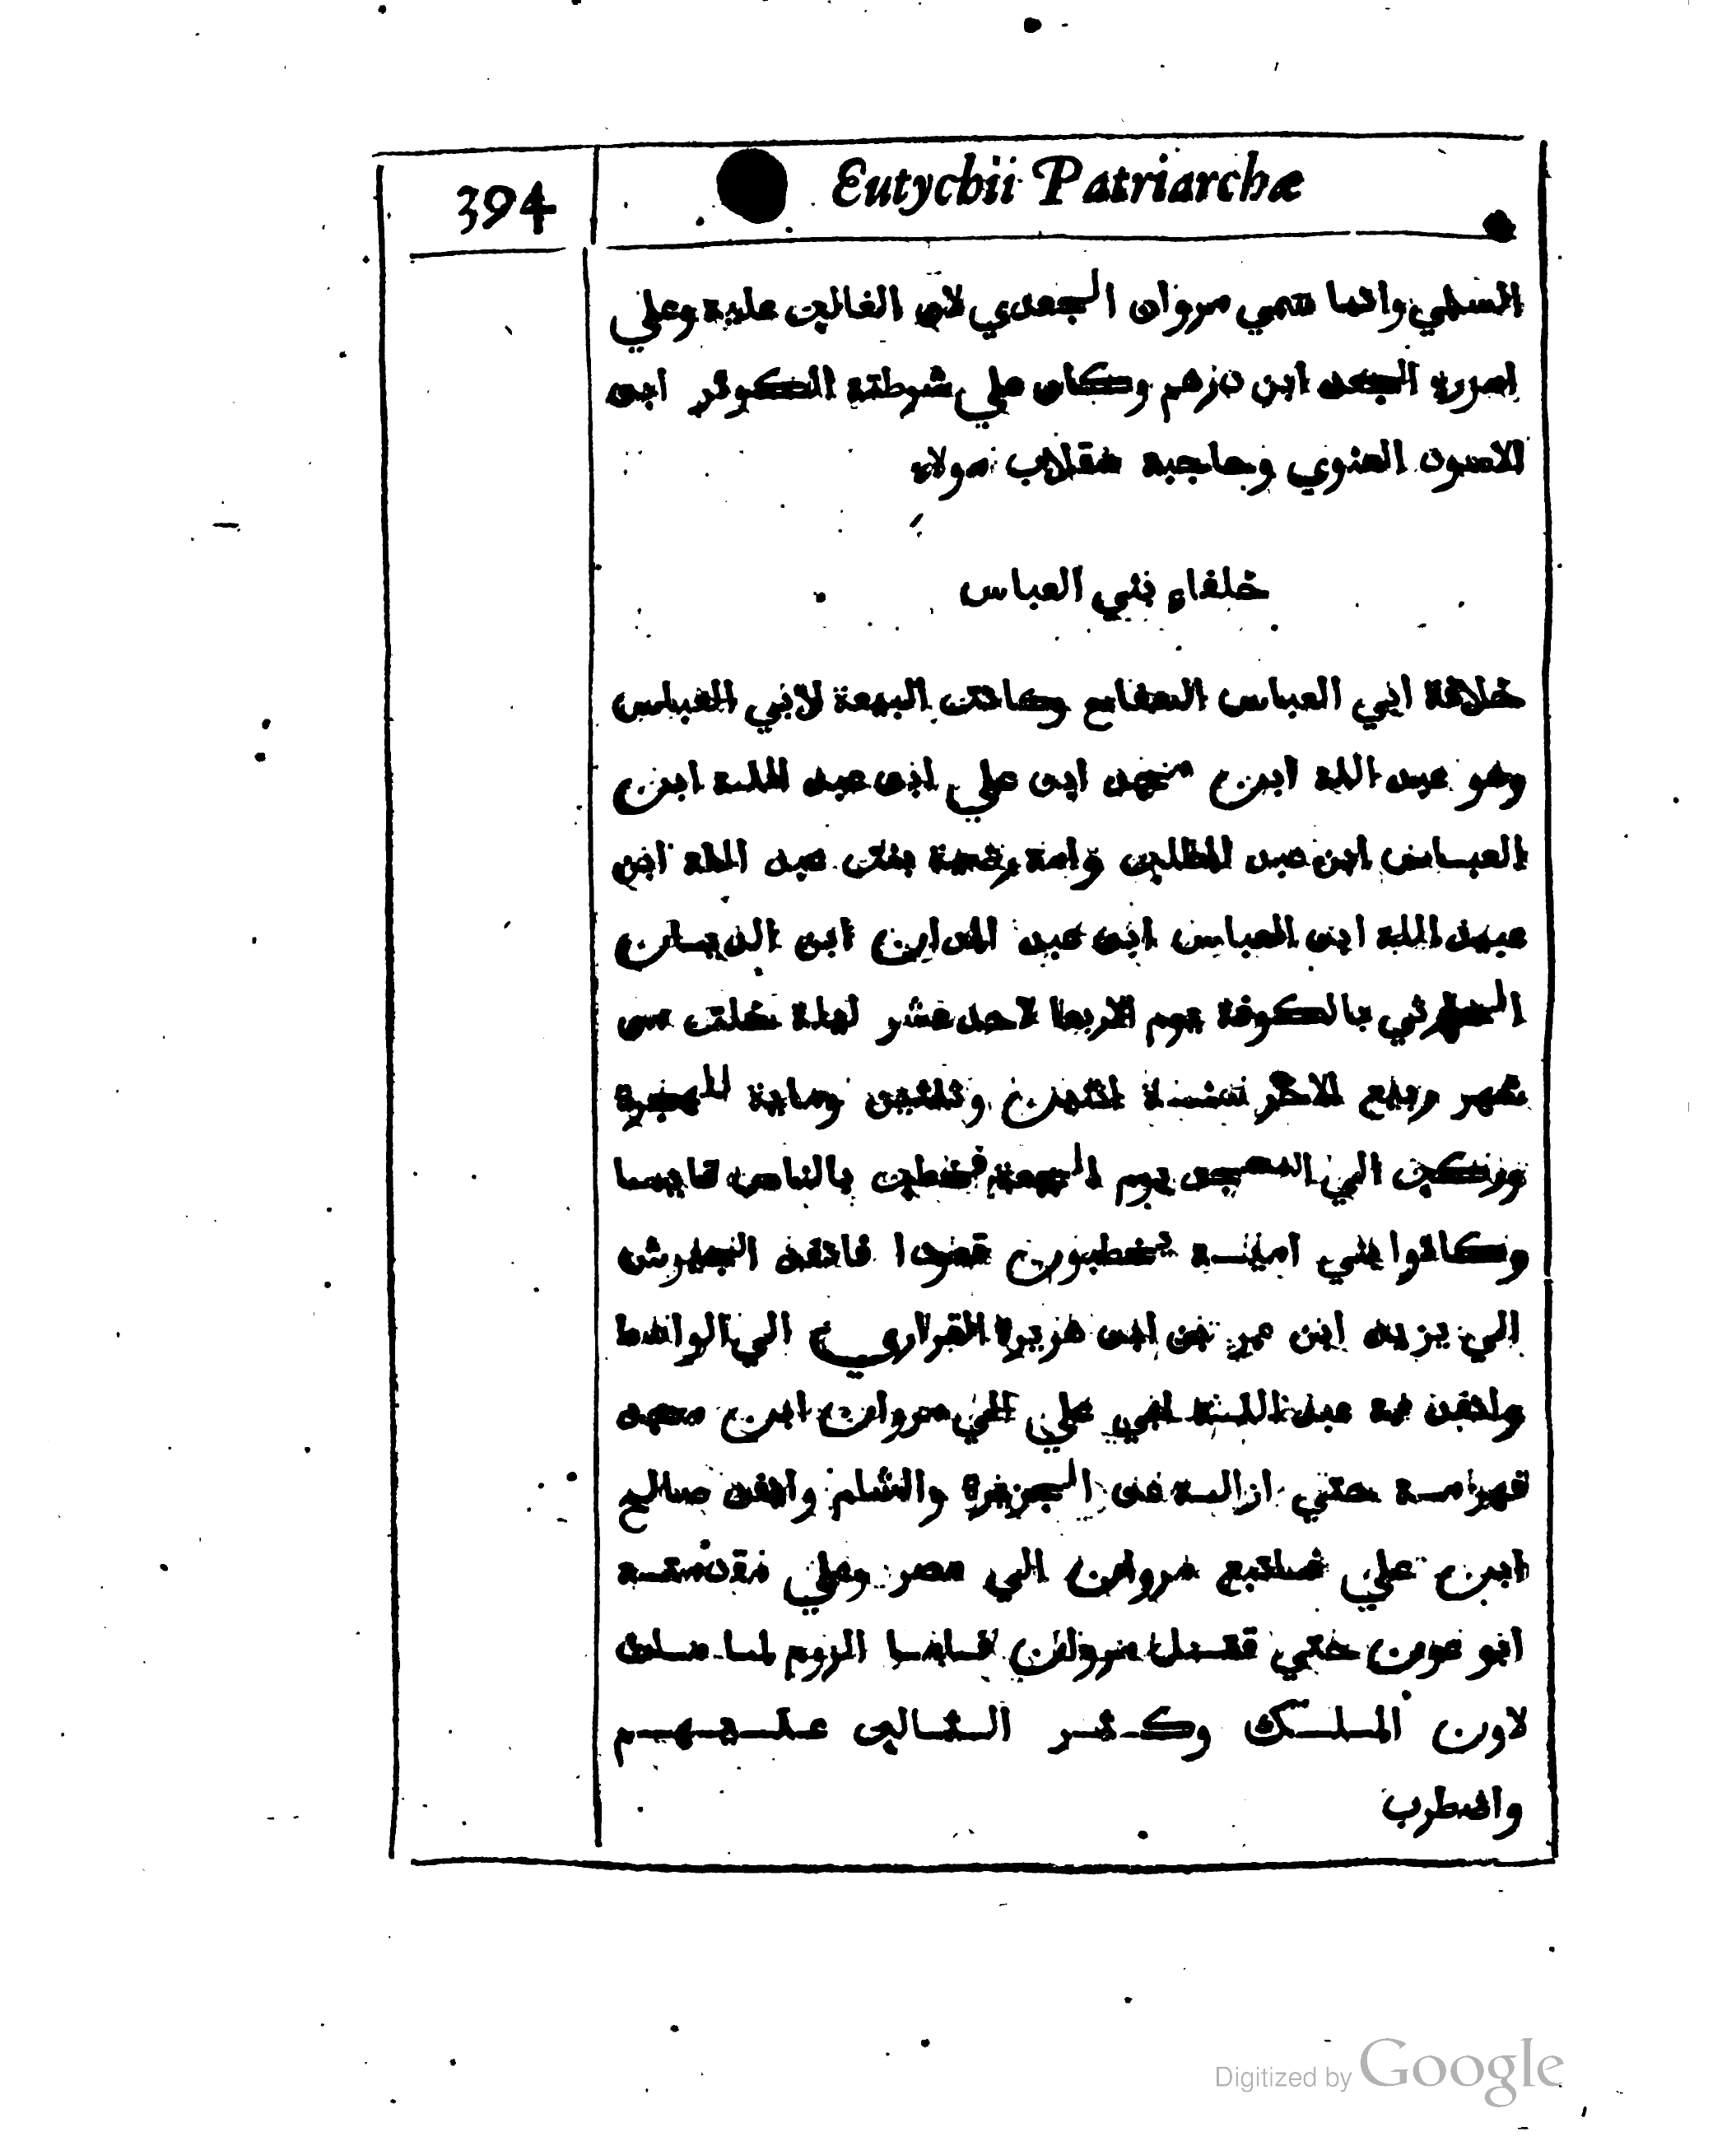 394
Eutychii Patriarchæ
السلمي وانما سمي مروان الجعدي لان الغالب علية وعلي
امره الجعد ابن درهم وكان علي شرطته الكوثر ابن
الاسود الغنوي وحاجبة سقلاب مولاه
خلفاء بني العباس
خلافة ابي العباس السفاح وكانت البيعة لابي العباس
وهو عبد اللة ابن محمد ابن علي ابن عبد اللة ابن
العباس ابن عبد المطلب وامة بنت عبد اللة ابن
عبد اللة ابن عبد المدان ابن الديان
الحارثي بالكوفة يوم الاربعا لاحد عشر ليلة خلت من
شهر ربيع الاخر سنة اثنين وثلثين وماية للهجرة
وركب الي المسجد يوم الجمعة فخطب بالناس قايما
وكانوا بني امية يخطبون قعودا فانفذ الجيوش
الي يزيد ابن عمر ابن الي الواسط
وانفذ عمة عبد اللة ابن علي الي مروان ابن محمد
فهزامة حتي ازالة عن الجزيرة والشام وانفذ صالح
ابن علي فاتبع مروان الي مصر وعلي مقدمتة
ابو عون حتي قتل مروان فاما الروم لما ملك
لاون الملك وكثر عليهم
واضطرب
Digitized by Google